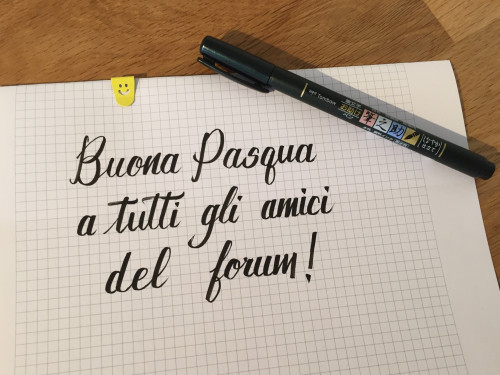 Buona Pasqua
a tutti gli amici
del forum!
Tombow
筆之助